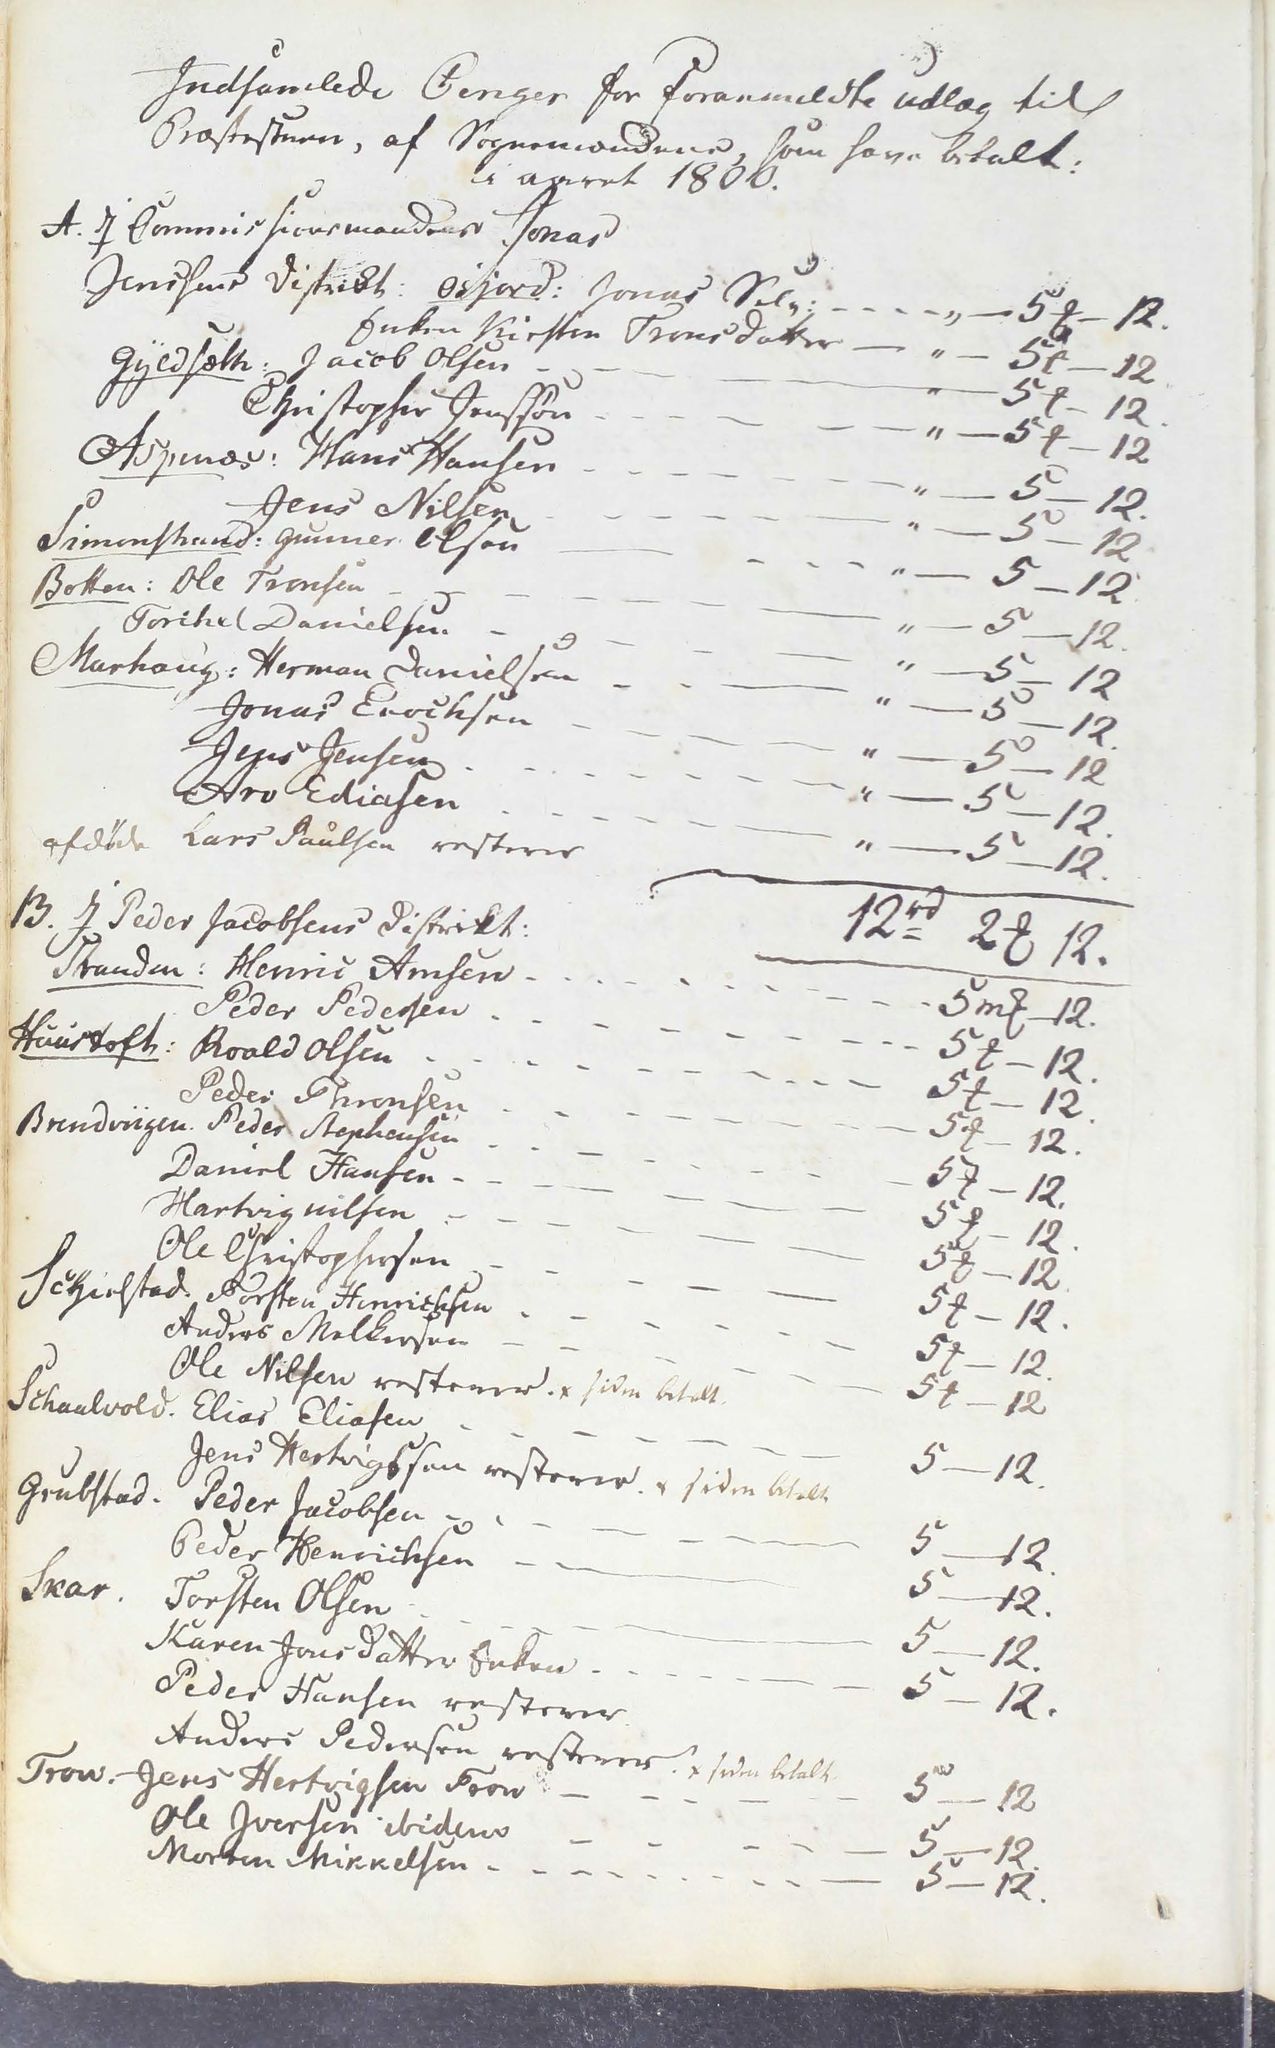 Indsamlede Penger for Foranmeldte udlæg til
Præstestuen, af Sognemændene, som have betalt:
i aaret 1800.
A. I Commissionsmandens Jonas
Jenssens Distrikt: Øijord: Jonas Selv: " 5 ꝑ 12.
Enken Kirsten Tronsdatter " 5 ꝑ 12
Gyldsæth: Jacob Olsen " 5 ꝑ 12.
Christopher Jenssøn " 5 ꝑ 12
Aspenæs: Hans Hansen " 5 12.
Jens Nilsen " 5 12
Simonstrand: Gunner Olsen " 5 12
Botten: Ole Tronsen " 5 12.
Torikel Danielsen " 5 12
Marhaug: Herman Danielsen " 5 12.
Jonas Enochsen " 5 12
Jens Jensen " 5 12.
Arv Ediasen " 5 12.
afdöde Lars Paulsen resterer
12 rd 2 ꝑ 12.
B. I Peder Jacobsens Distrikt:
Stranden: Henric Arnsen 5 mꝑ 12.
Peder Pedersen 5 ꝑ 12.
Huustoft: Roald Olsen 5 ꝑ 12.
Peder Thronsen 5 ꝑ 12.
Brendviigen. Peder Stephensen 5 ꝑ 12.
Daniel Hansen 5 ꝑ 12.
Hartvig nilsen 5 ꝑ 12
Ole Christophersen 5 ꝑ 12.
Schjelstad. Torsten Henrichsen 5 ꝑ 12.
Anders Melkersen 5 ꝑ 12
Ole Nilsen resterer. x siden betalt.
Schaalvold. Elias Eliasen 5 12.
Jens Hertvigssen resterer. x siden betalt
Grubstad. Peder Jacobsen 5 12.
Peder Henrichsen 5 12.
Skar. Torsten Olsen 5 12.
Karen Jonsdatter Enken 5 12.
Peder Hansen resterer
Anders Pedersen resterer. x siden betalt.
Trow. Jens Hertvigsen Trow 5 12
Ole Iversen ibidem 5 12.
Morten Mikkelsen 5 12.